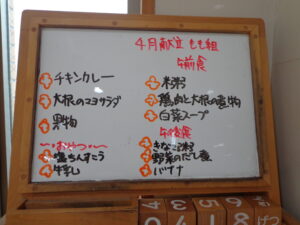 4月献立 もも組
午前食
チキンカレー
大根のマヨサラダ
果物
〜おやつ〜
ちんすこう
牛乳
米粥
鶏肉と大根の煮物
白菜スープ
午後食
きなこ粥
野菜のだし煮
バナナ
4 1 8 げつ